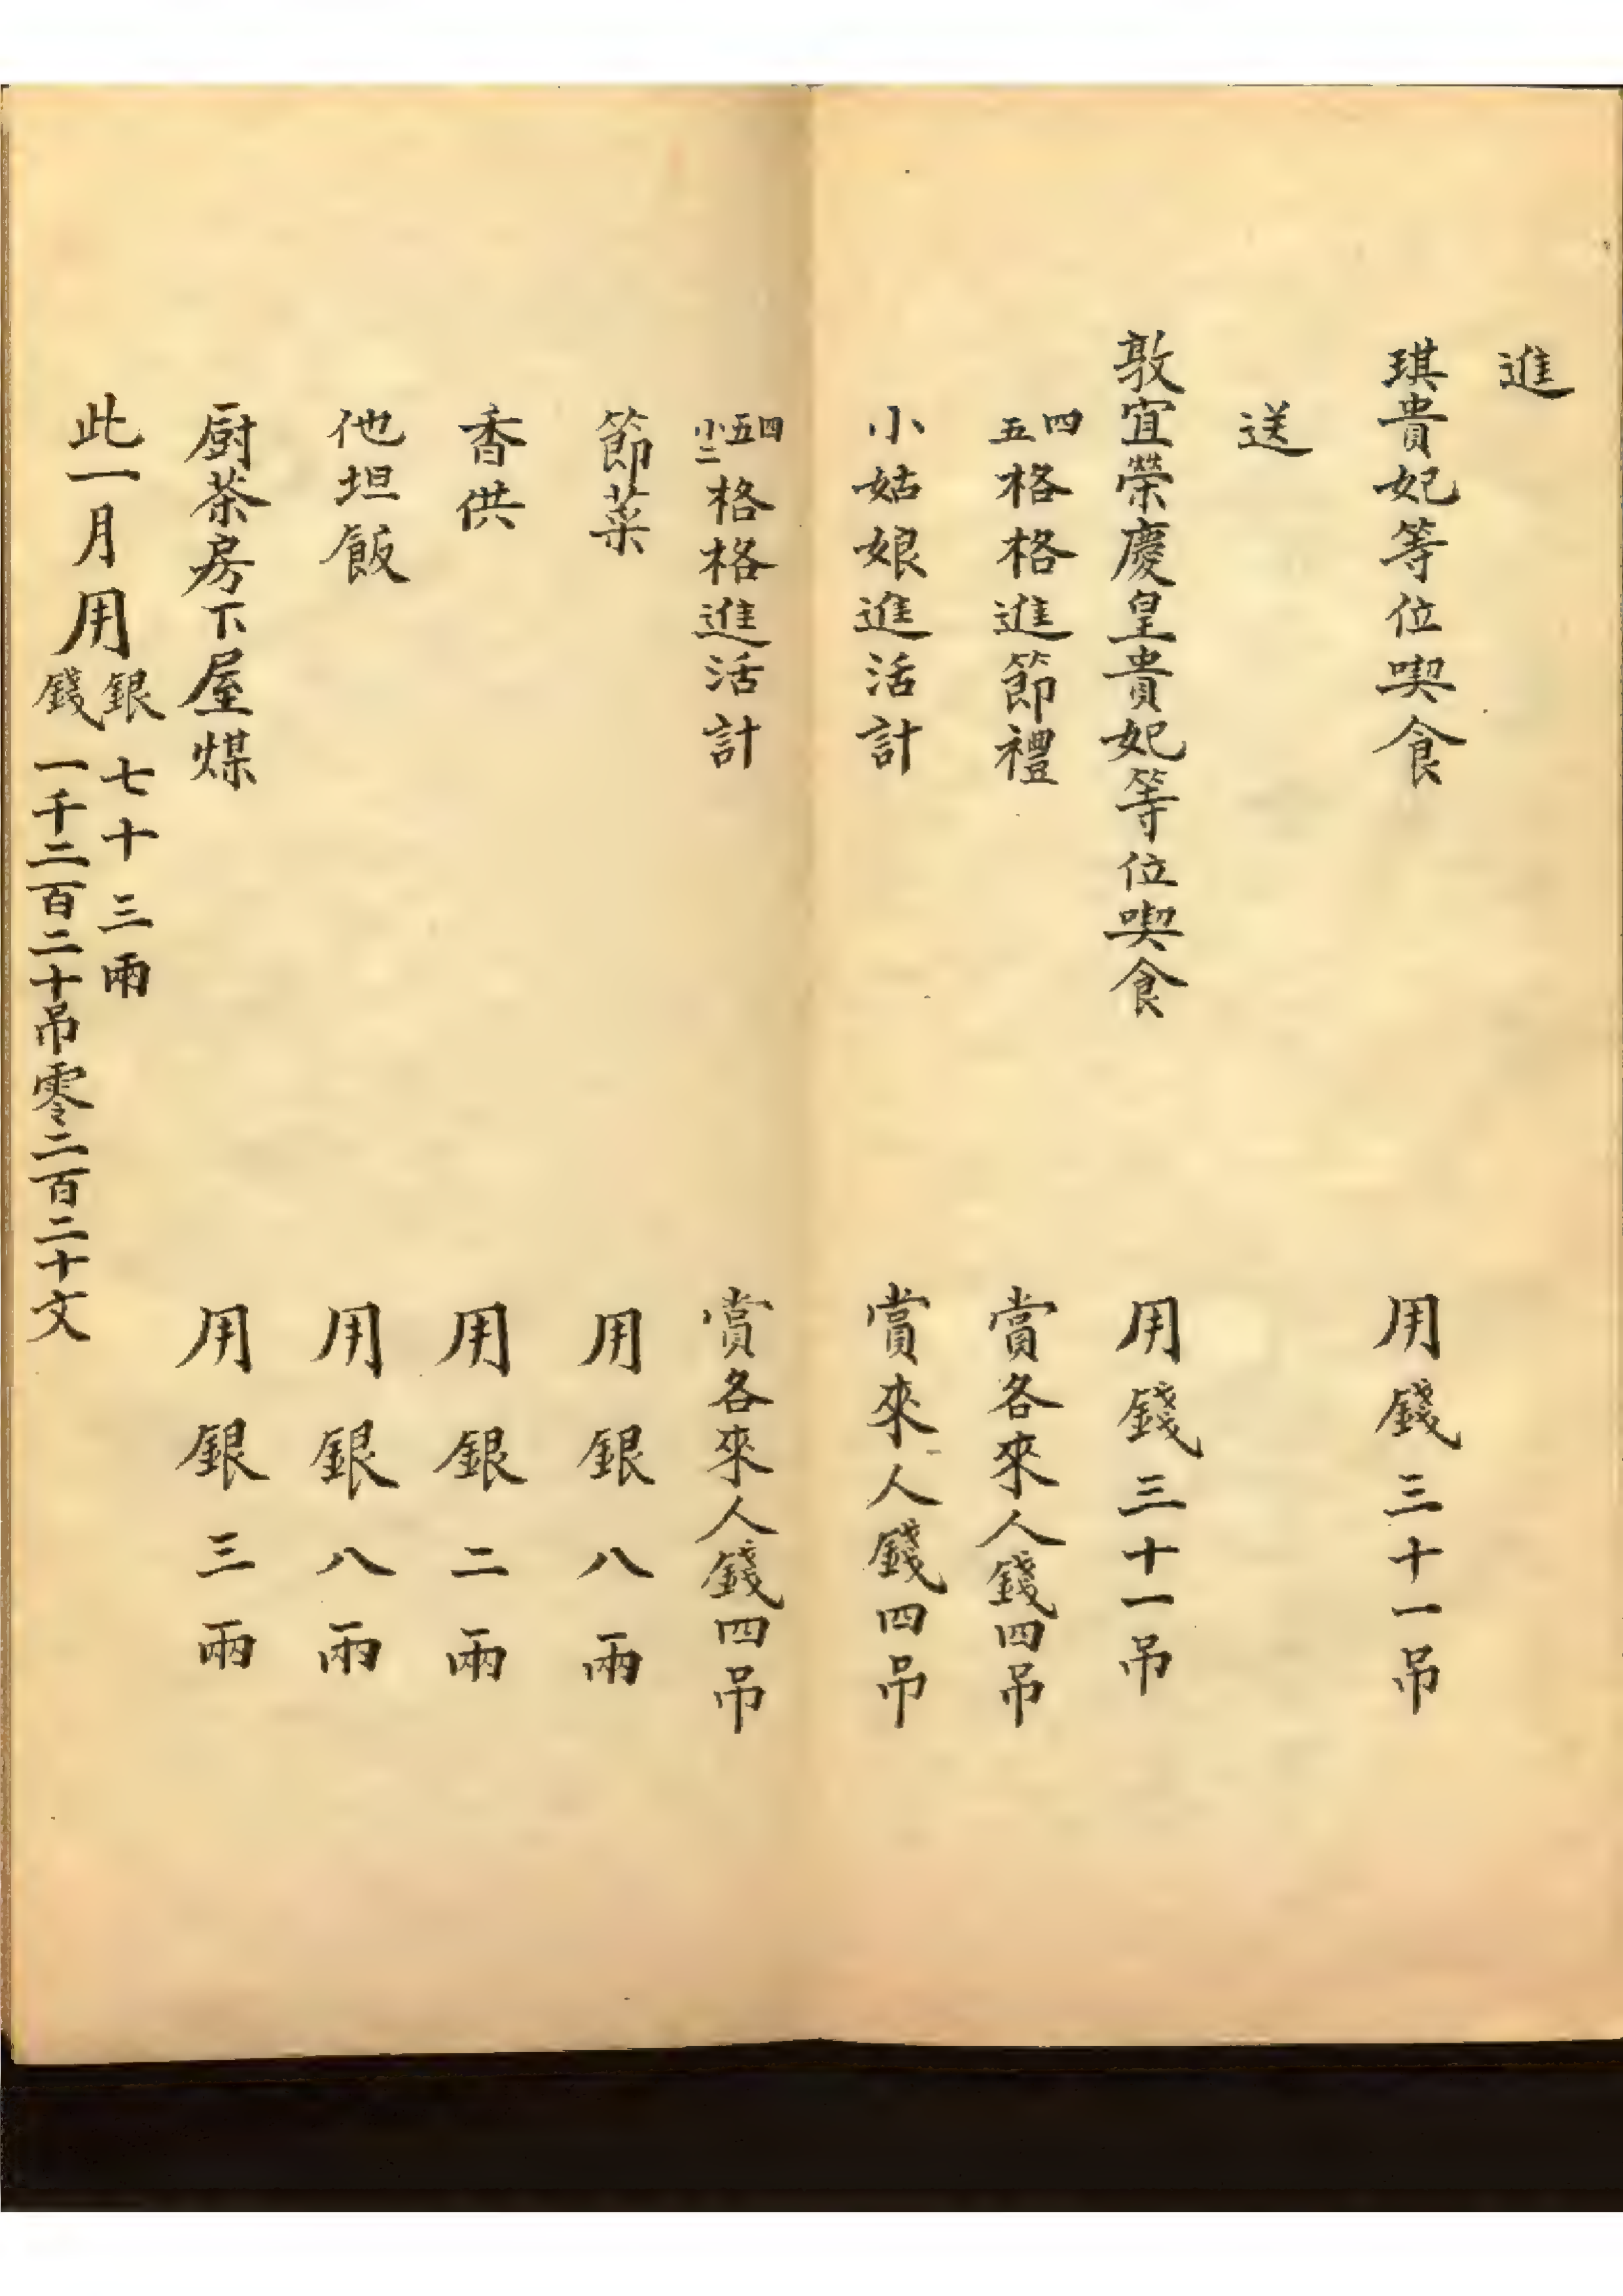 進
琪貴妃等位喫食 用錢三十一吊
送
敦宜榮慶皇貴妃等位喫食 用錢三十一吊
四五格格進節禮 賞各來人錢四吊
小姑娘進活計 賞來人錢四吊
四五小二格格進活計 賞各來人錢四吊
節菜 用銀八兩
香供 用銀二兩
他坦飯 用銀八兩
厨茶房下屋煤 用銀三兩
此一月用銀七十三兩
錢一千二百二十吊零二百二十文